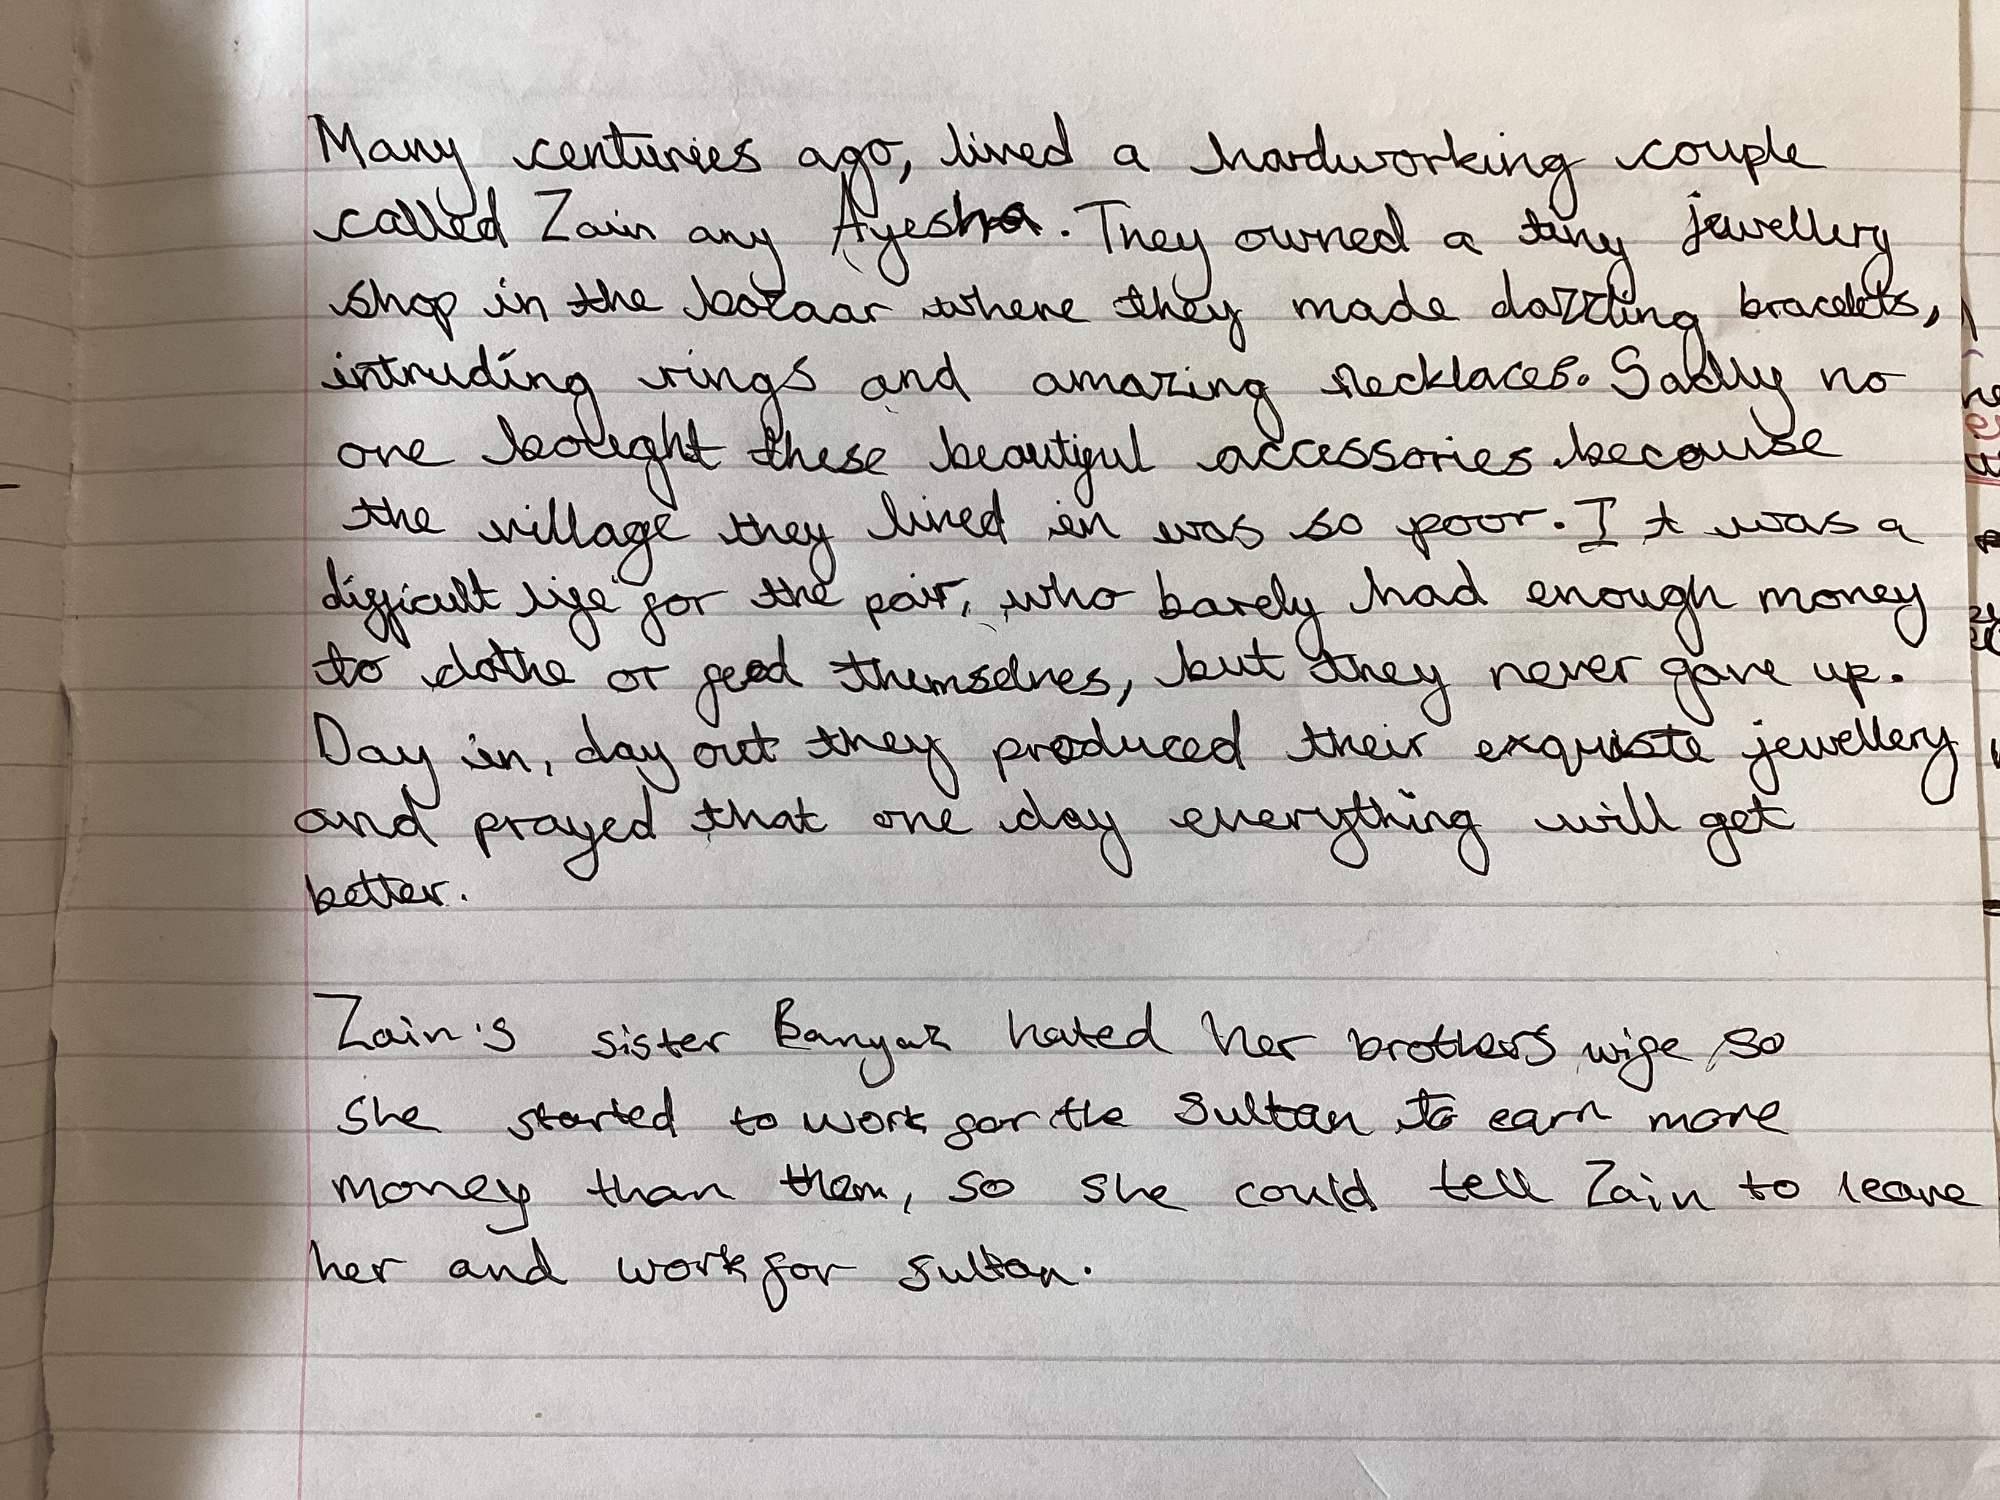 Many centuries ago, lived a hardworking couple
called Zain any Ayesha. They owned a tiny jewellery
shop in the bazaar where they made dazzling bracelets,
intruding rings and amazing necklaces. Sadly no
one bought these beautiful accessories because
the village they lived in was so poor. It was a
difficult life for the pair, who barely had enough money
to clothe or feed themselves, but they never gave up.
Day in, day out they produced their exquiste jewellery
and prayed that one day everything will get
better.
Zain's sister hated her brothers wife, so
she started to work for the Sultan to earn more
money than them, so she could tell Zain to leave
her and work for sultan.